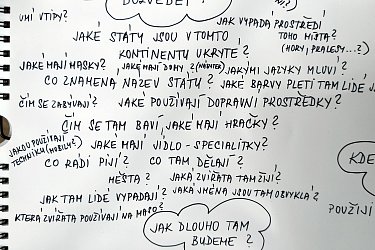 DOZVĚDĚT?
UMÍ VTIPY?
JAK VYPADÁ PROSTŘEDÍ
TOHO MÍSTA?
(HORY, PRALESY...?)
JAKÉ STÁTY JSOU V TOMTO
KONTINENTU UKRYTÉ?
JAKÉ MAJÍ MASKY?
JAKÉ MAJÍ DOMY?
JAKÝMI JAZYKY MLUVÍ?
CO ZNAMENÁ NÁZEV STÁTU?
JAKÉ BARVY PLETI TAM LIDÉ
ČÍM SE ZABÝVAJÍ?
JAKÉ POUŽÍVAJÍ DOPRAVNÍ PROSTŘEDKY?
ČÍM SE TAM BAVÍ, JAKÉ MAJÍ HRAČKY?
JAKOU POUŽÍVAJÍ
TECHNIKU (MOBILY?)
JAKÉ MAJÍ JÍDLO - SPECIALITKY?
KDE
CO RÁDI PIJÍ?
CO TAM DĚLAJÍ?
MĚSTA?
JAKÁ ZVÍŘATA TAM ŽIJÍ?
JAK TAM LIDÉ VYPADAJÍ?
JAKÁ JMÉNA JSOU TAM OBVYKLÁ?
KTERÁ ZVÍŘATA POUŽÍVAJÍ NA
POUŽIJÍ
JAK DLOUHO TAM
BUDEME?